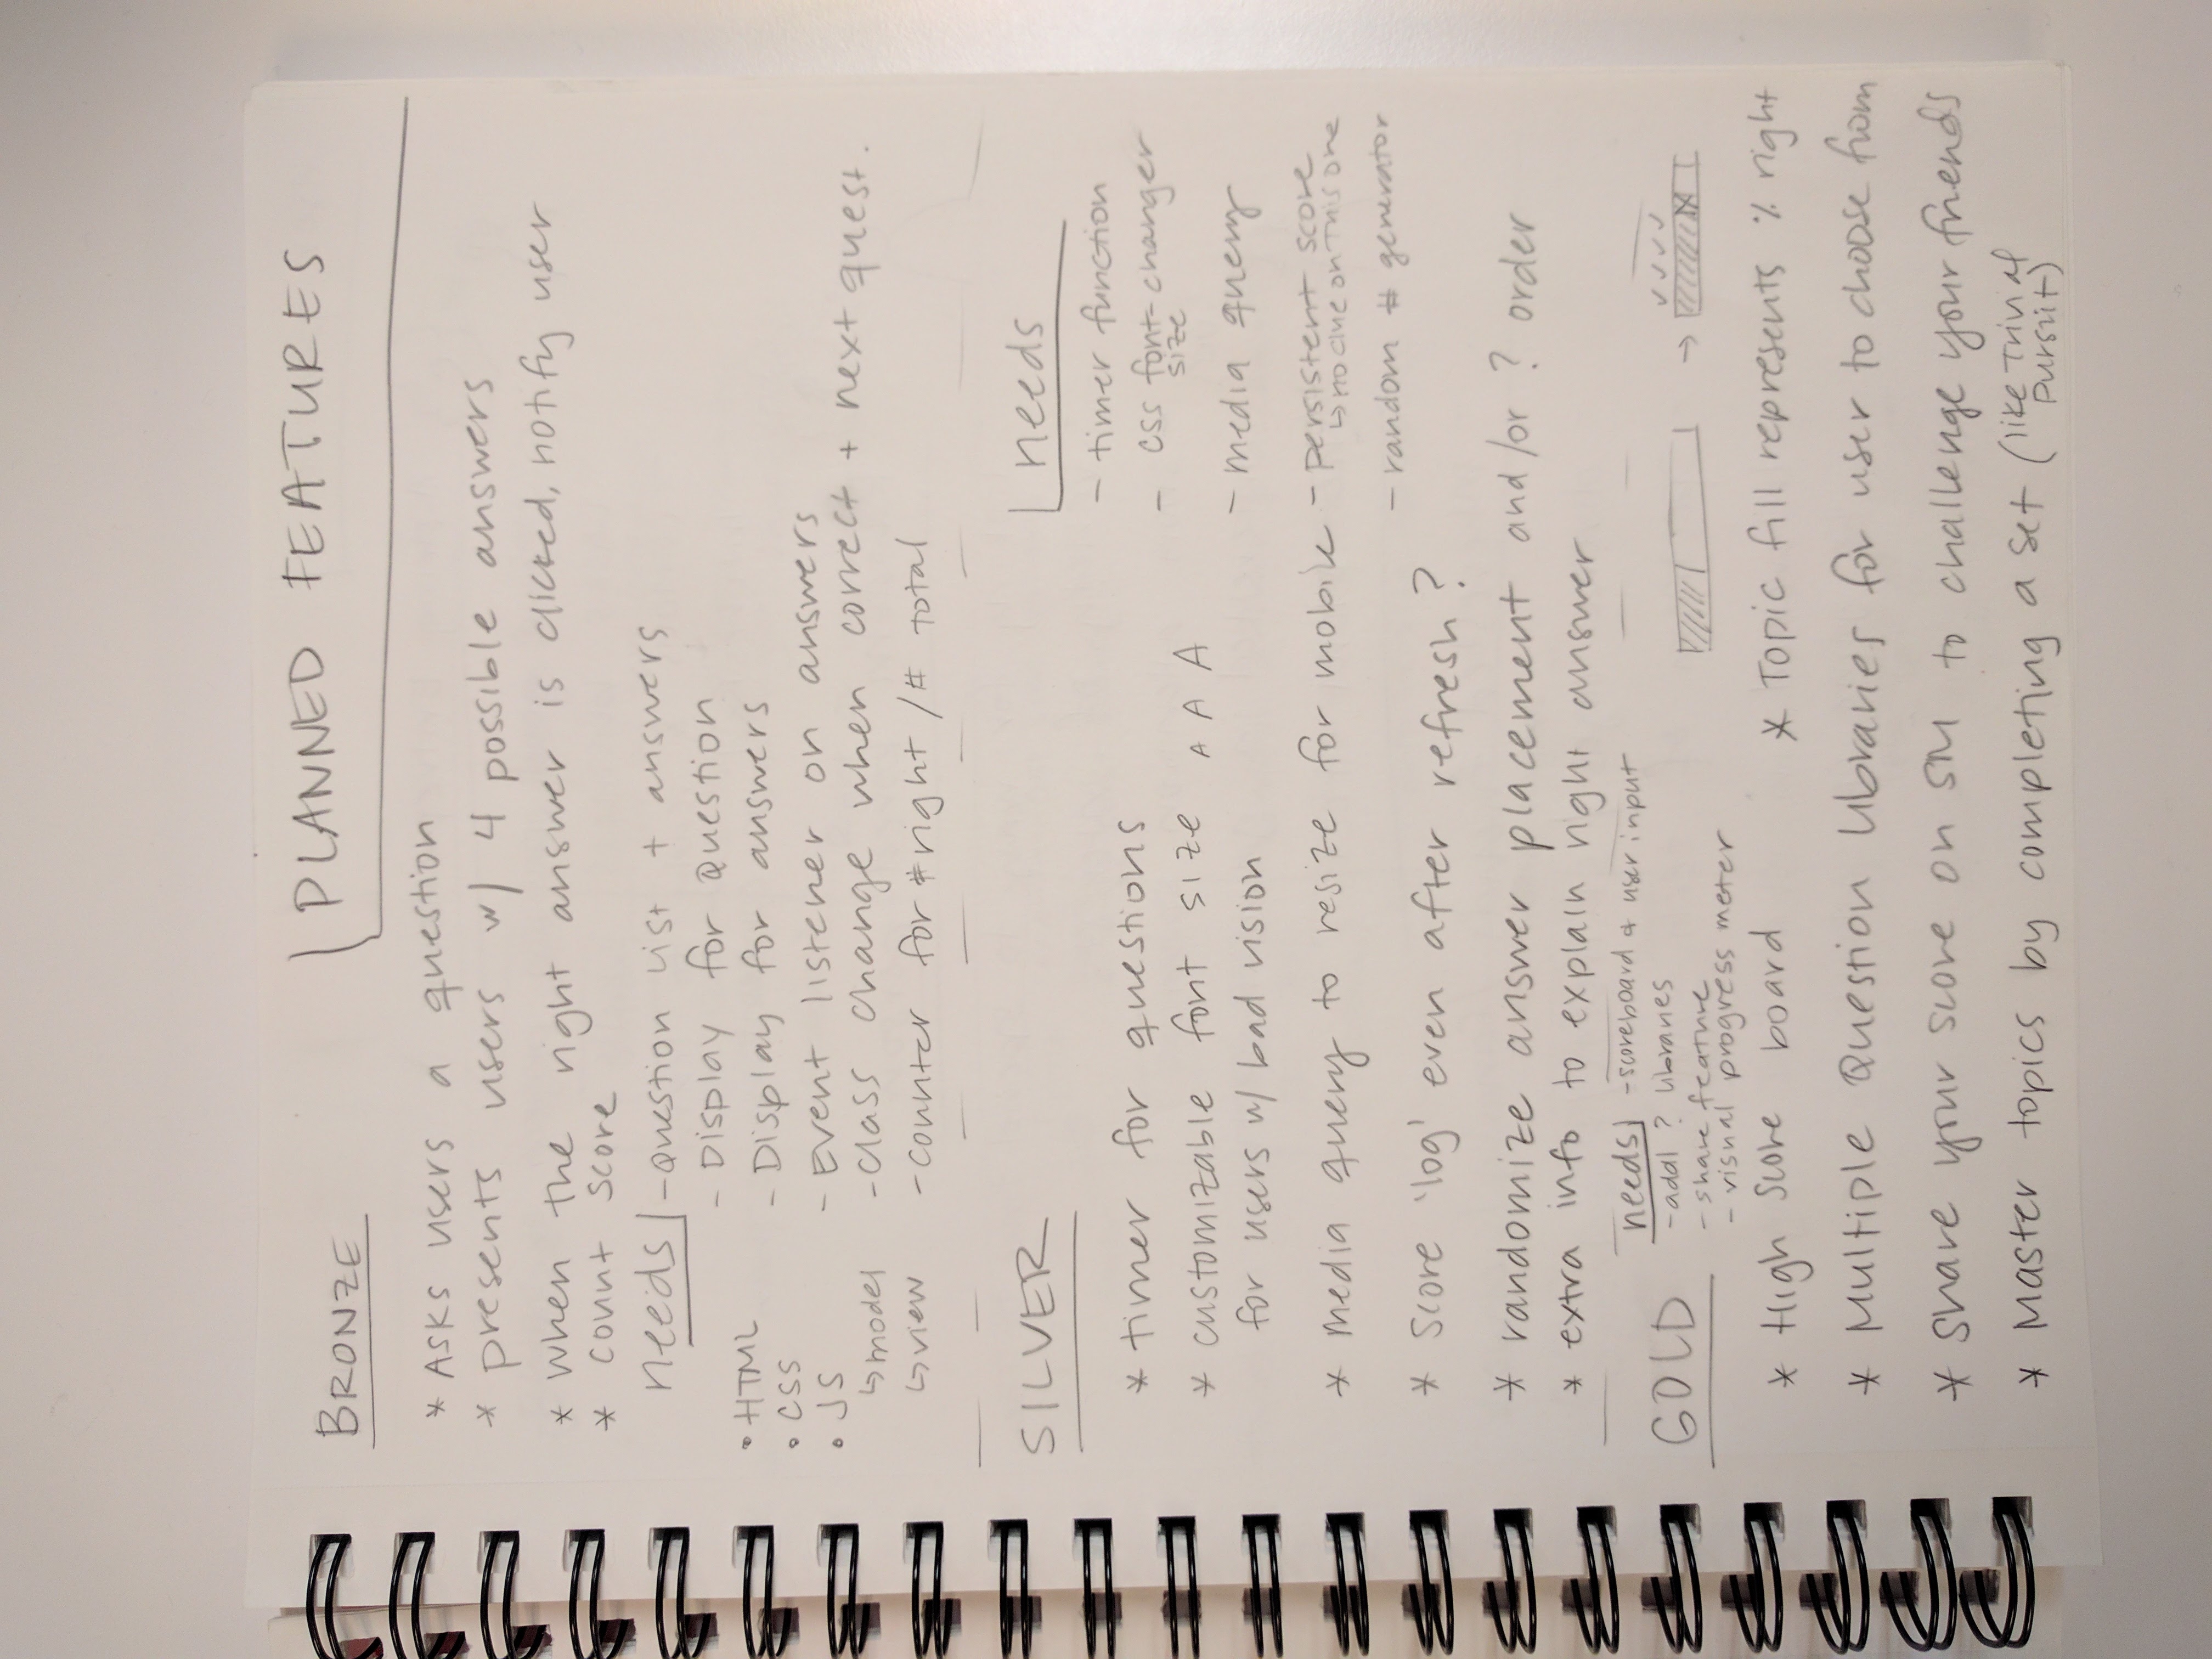 PLANNED FEATURES
BRONZE
* Asks users a question
* presents users w/ 4 possible answers
* when the right answer is clicked, notify user
* count score
needs
- Question list + answers
- Display for Question
- Display for answers
- Event listener on answers
- class change when correct + next quest.
- counter for # right / # total
• HTML
• CSS
• JS
↳ model
↳ view
SILVER
* timer for questions
* customizable font size A A A
for users w/ bad vision
* media query to resize for mobile
* Score 'log' even after refresh?
* randomize answer placement and/or ? order
* extra info to explain right answer
needs
- timer function
- CSS font-changer
size
- media query
- persistent score
↳ no clue on this one
- random # generator
GOLD
needs
- scoreboard + user input
- addl ? libraries
- share feature
- visual progress meter
* High Score board
* Topic fill represents % right
* Multiple Question libraries for user to choose from
* Share your score on SM to challenge your friends
* Master topics by completing a set (like Trivial
Pursuit)